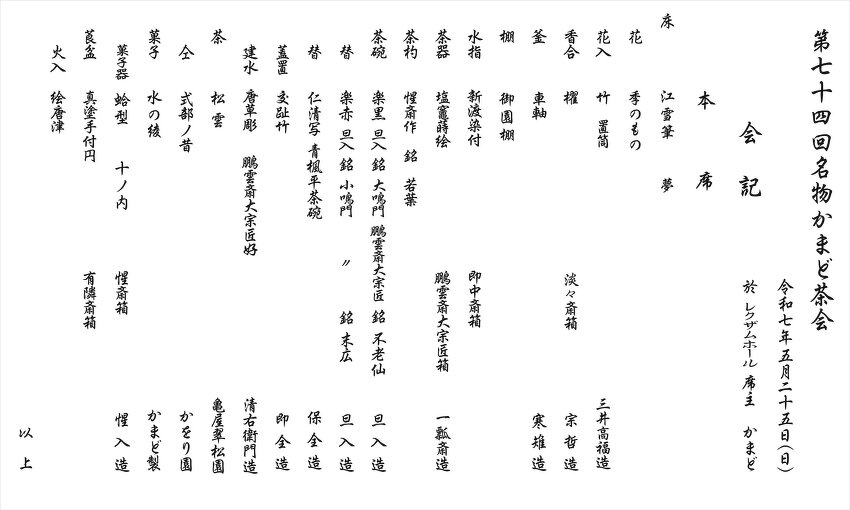 第七十四回名物かまど茶会
令和七年五月二十五日(日)
会記 於 レクザムホール 席主 かまど
本席
床 江雪筆 夢
花 季のもの
花入 竹 置筒 三井高福造
香合 櫂 淡々斎箱 宗哲造
釜 車軸 寒雉造
棚 御園棚
水指 新渡染付 即中斎箱
茶器 塩竈蒔絵 鵬雲斎大宗匠箱 一瓢斎造
茶杓 惺斎作 銘 若葉
茶碗 楽黒 旦入 銘 大鳴門 鵬雲斎大宗匠 銘 不老仙 旦入造
替 楽赤 旦入 銘 小鳴門 〃 銘 末広 旦入造
替 仁清写 青楓平茶碗 保全造
蓋置 交趾竹 即全造
建水 唐草彫 鵬雲斎大宗匠好 清右衛門造
茶 松雲 亀屋翠松園
仝 式部ノ昔 かをり園
菓子 水の綾 かまど製
菓子器 蛤型 十ノ内 惺斎箱 惺入造
莨盆 真塗手付円 有隣斎箱
火入 絵唐津
以上